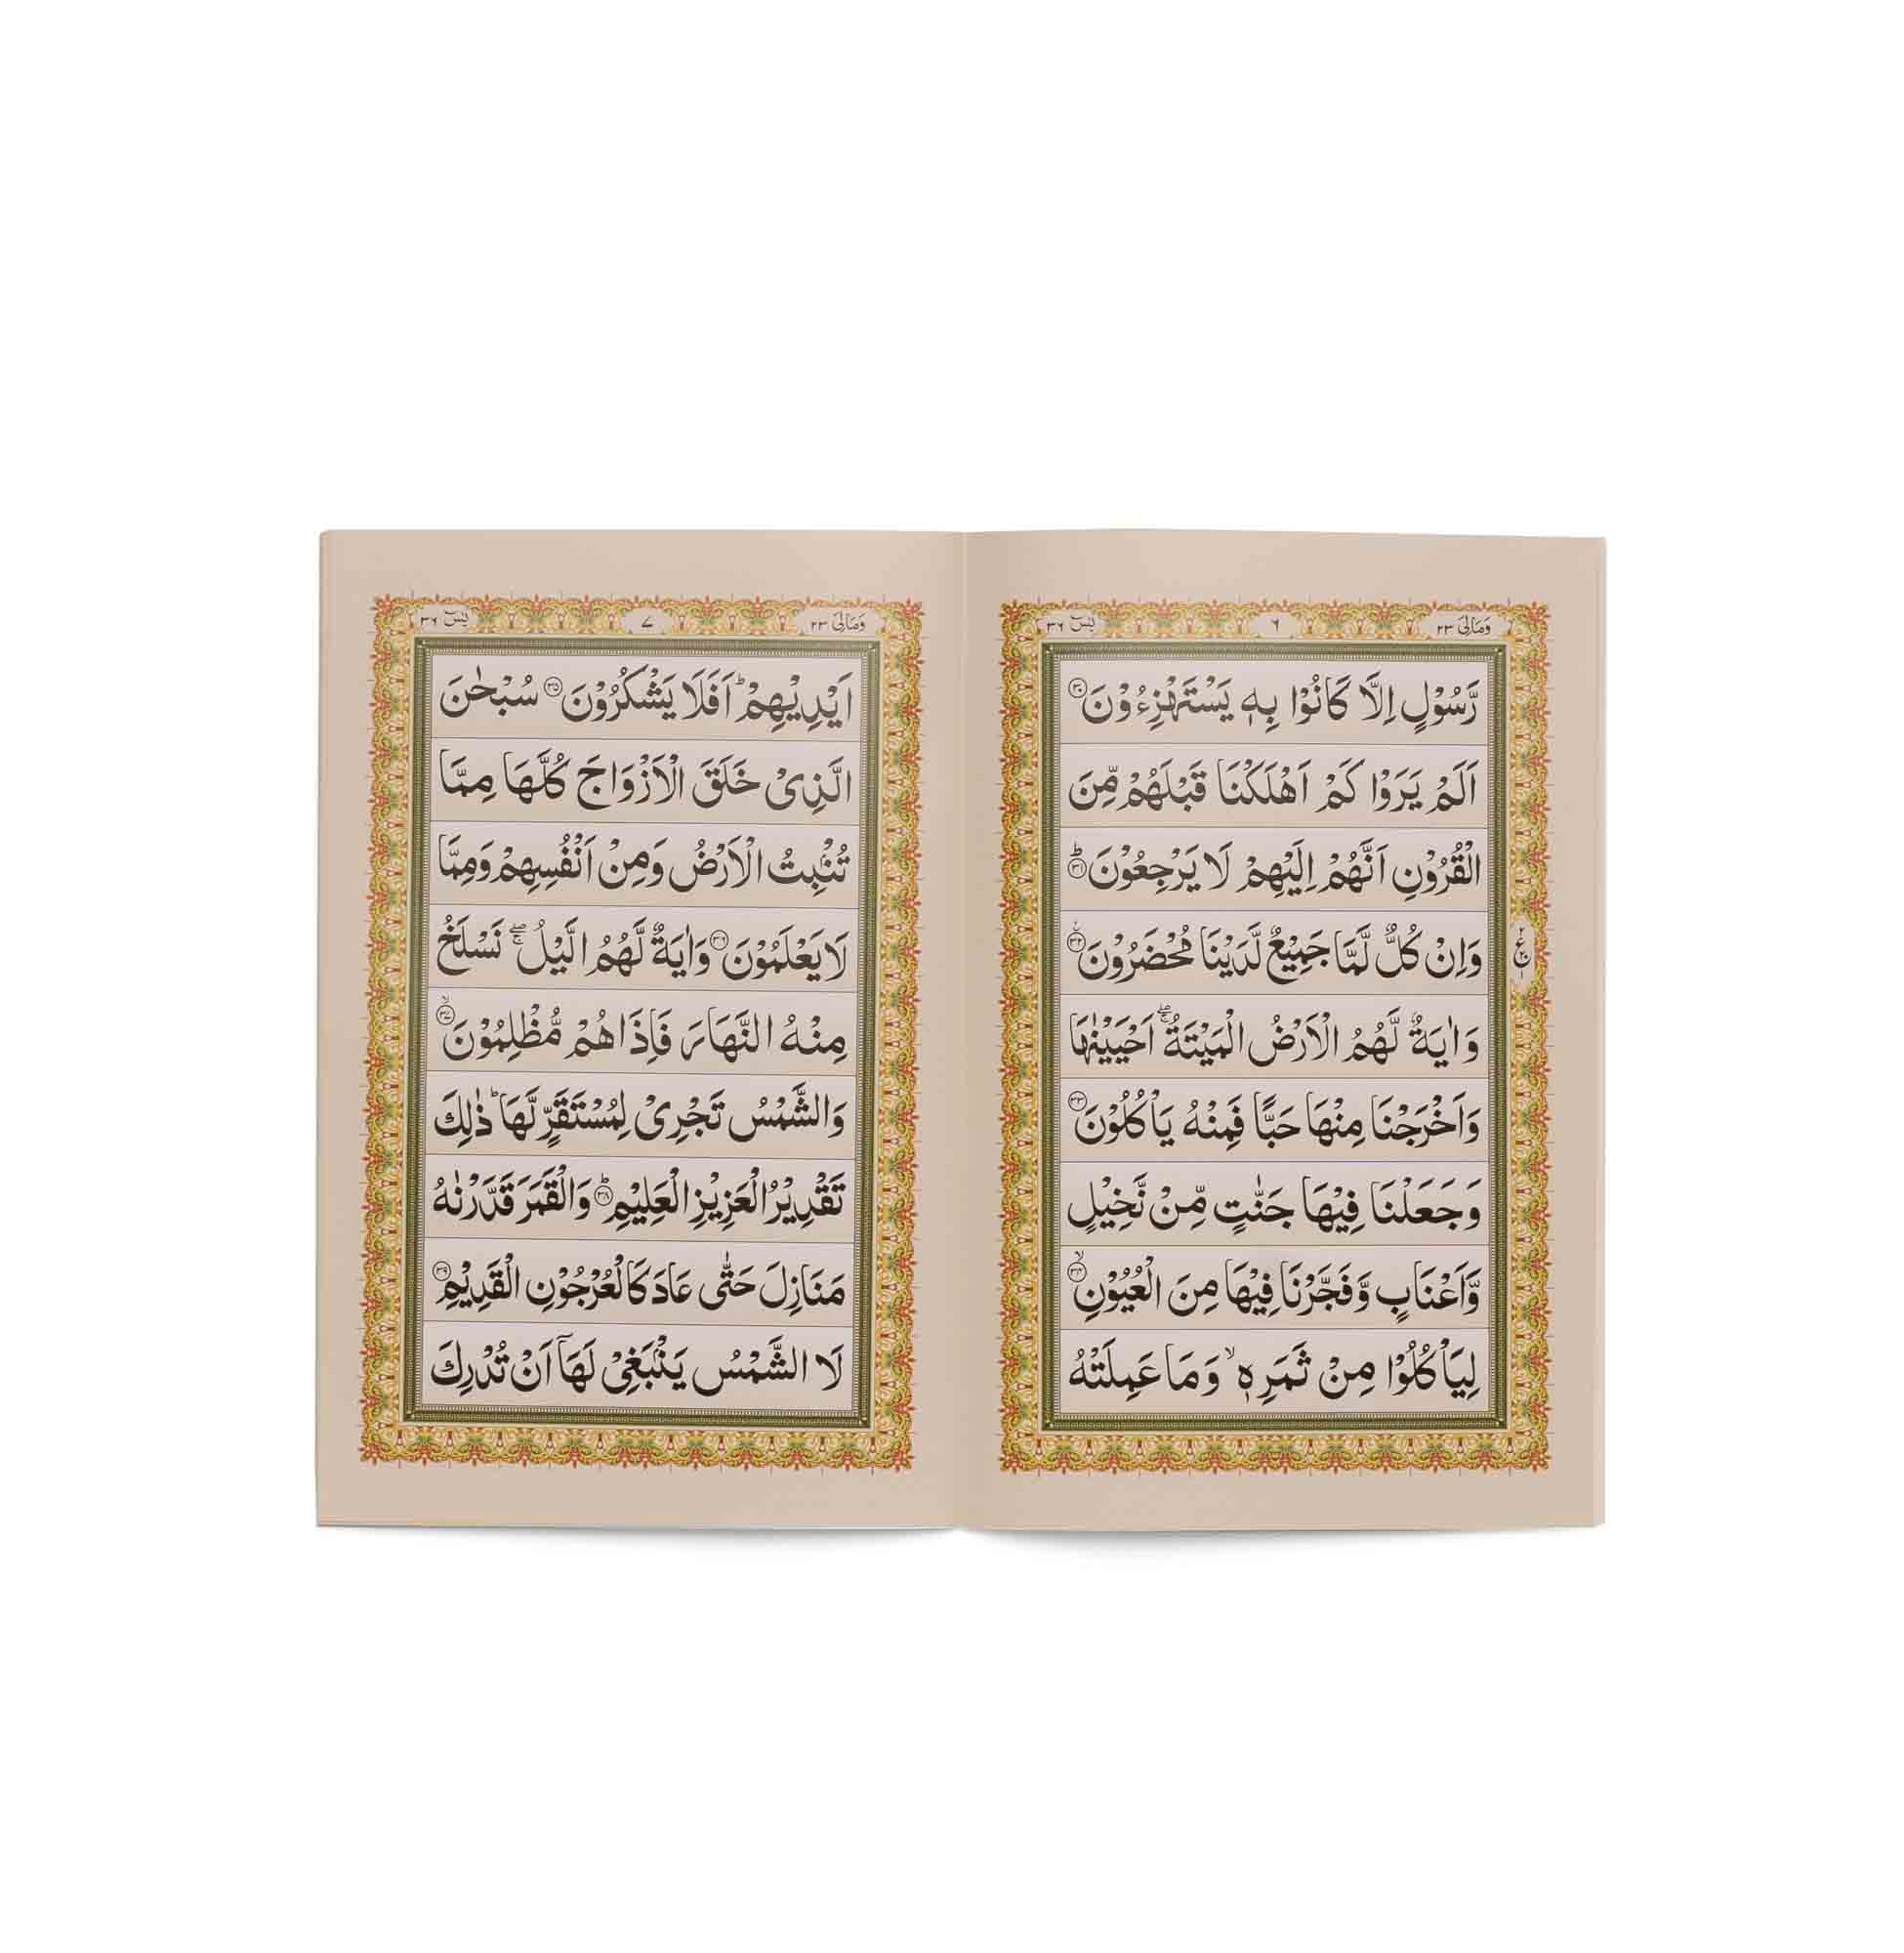 وَمَالِیَ ٢٣
٦
یٰسٓ ٣٦
رَّسُوْلٍ اِلَّا كَانُوْا بِهٖ يَسْتَهْزِءُوْنَ ﴿٣٠﴾
اَلَمْ يَرَوْا كَمْ اَهْلَكْنَا قَبْلَهُمْ مِّنَ
الْقُرُوْنِ اَنَّهُمْ اِلَيْهِمْ لَا يَرْجِعُوْنَ ؕ﴿٣١﴾
وَاِنْ كُلٌّ لَّمَّا جَمِيْعٌ لَّدَيْنَا مُحْضَرُوْنَ ﴿٣٢﴾
ع
وَاٰيَةٌ لَّهُمُ الْاَرْضُ الْمَيْتَةُ ۖۚ اَحْيَيْنٰهَا
وَاَخْرَجْنَا مِنْهَا حَبًّا فَمِنْهُ يَاْكُلُوْنَ ﴿٣٣﴾
وَجَعَلْنَا فِيْهَا جَنّٰتٍ مِّنْ نَّخِيْلٍ
وَّاَعْنَابٍ وَّفَجَّرْنَا فِيْهَا مِنَ الْعُيُوْنِ ۙ﴿٣٤﴾
لِيَاْكُلُوْا مِنْ ثَمَرِهٖ ۙ وَمَا عَمِلَتْهُ
وَمَالِیَ ٢٣
٧
یٰسٓ ٣٦
اَيْدِيْهِمْ ؕ اَفَلَا يَشْكُرُوْنَ ﴿٣٥﴾ سُبْحٰنَ
الَّذِىْ خَلَقَ الْاَزْوَاجَ كُلَّهَا مِمَّا
تُنْۢبِتُ الْاَرْضُ وَمِنْ اَنْفُسِهِمْ وَمِمَّا
لَا يَعْلَمُوْنَ ﴿٣٦﴾ وَاٰيَةٌ لَّهُمُ الَّيْلُ ۖۚ نَسْلَخُ
مِنْهُ النَّهَارَ فَاِذَا هُمْ مُّظْلِمُوْنَ ۙ﴿٣٧﴾
وَالشَّمْسُ تَجْرِىْ لِمُسْتَقَرٍّ لَّهَا ؕ ذٰلِكَ
تَقْدِيْرُ الْعَزِيْزِ الْعَلِيْمِ ؕ﴿٣٨﴾ وَالْقَمَرَ قَدَّرْنٰهُ
مَنَازِلَ حَتّٰى عَادَ كَالْعُرْجُوْنِ الْقَدِيْمِ ﴿٣٩﴾
لَا الشَّمْسُ يَنْۢبَغِىْ لَهَاۤ اَنْ تُدْرِكَ